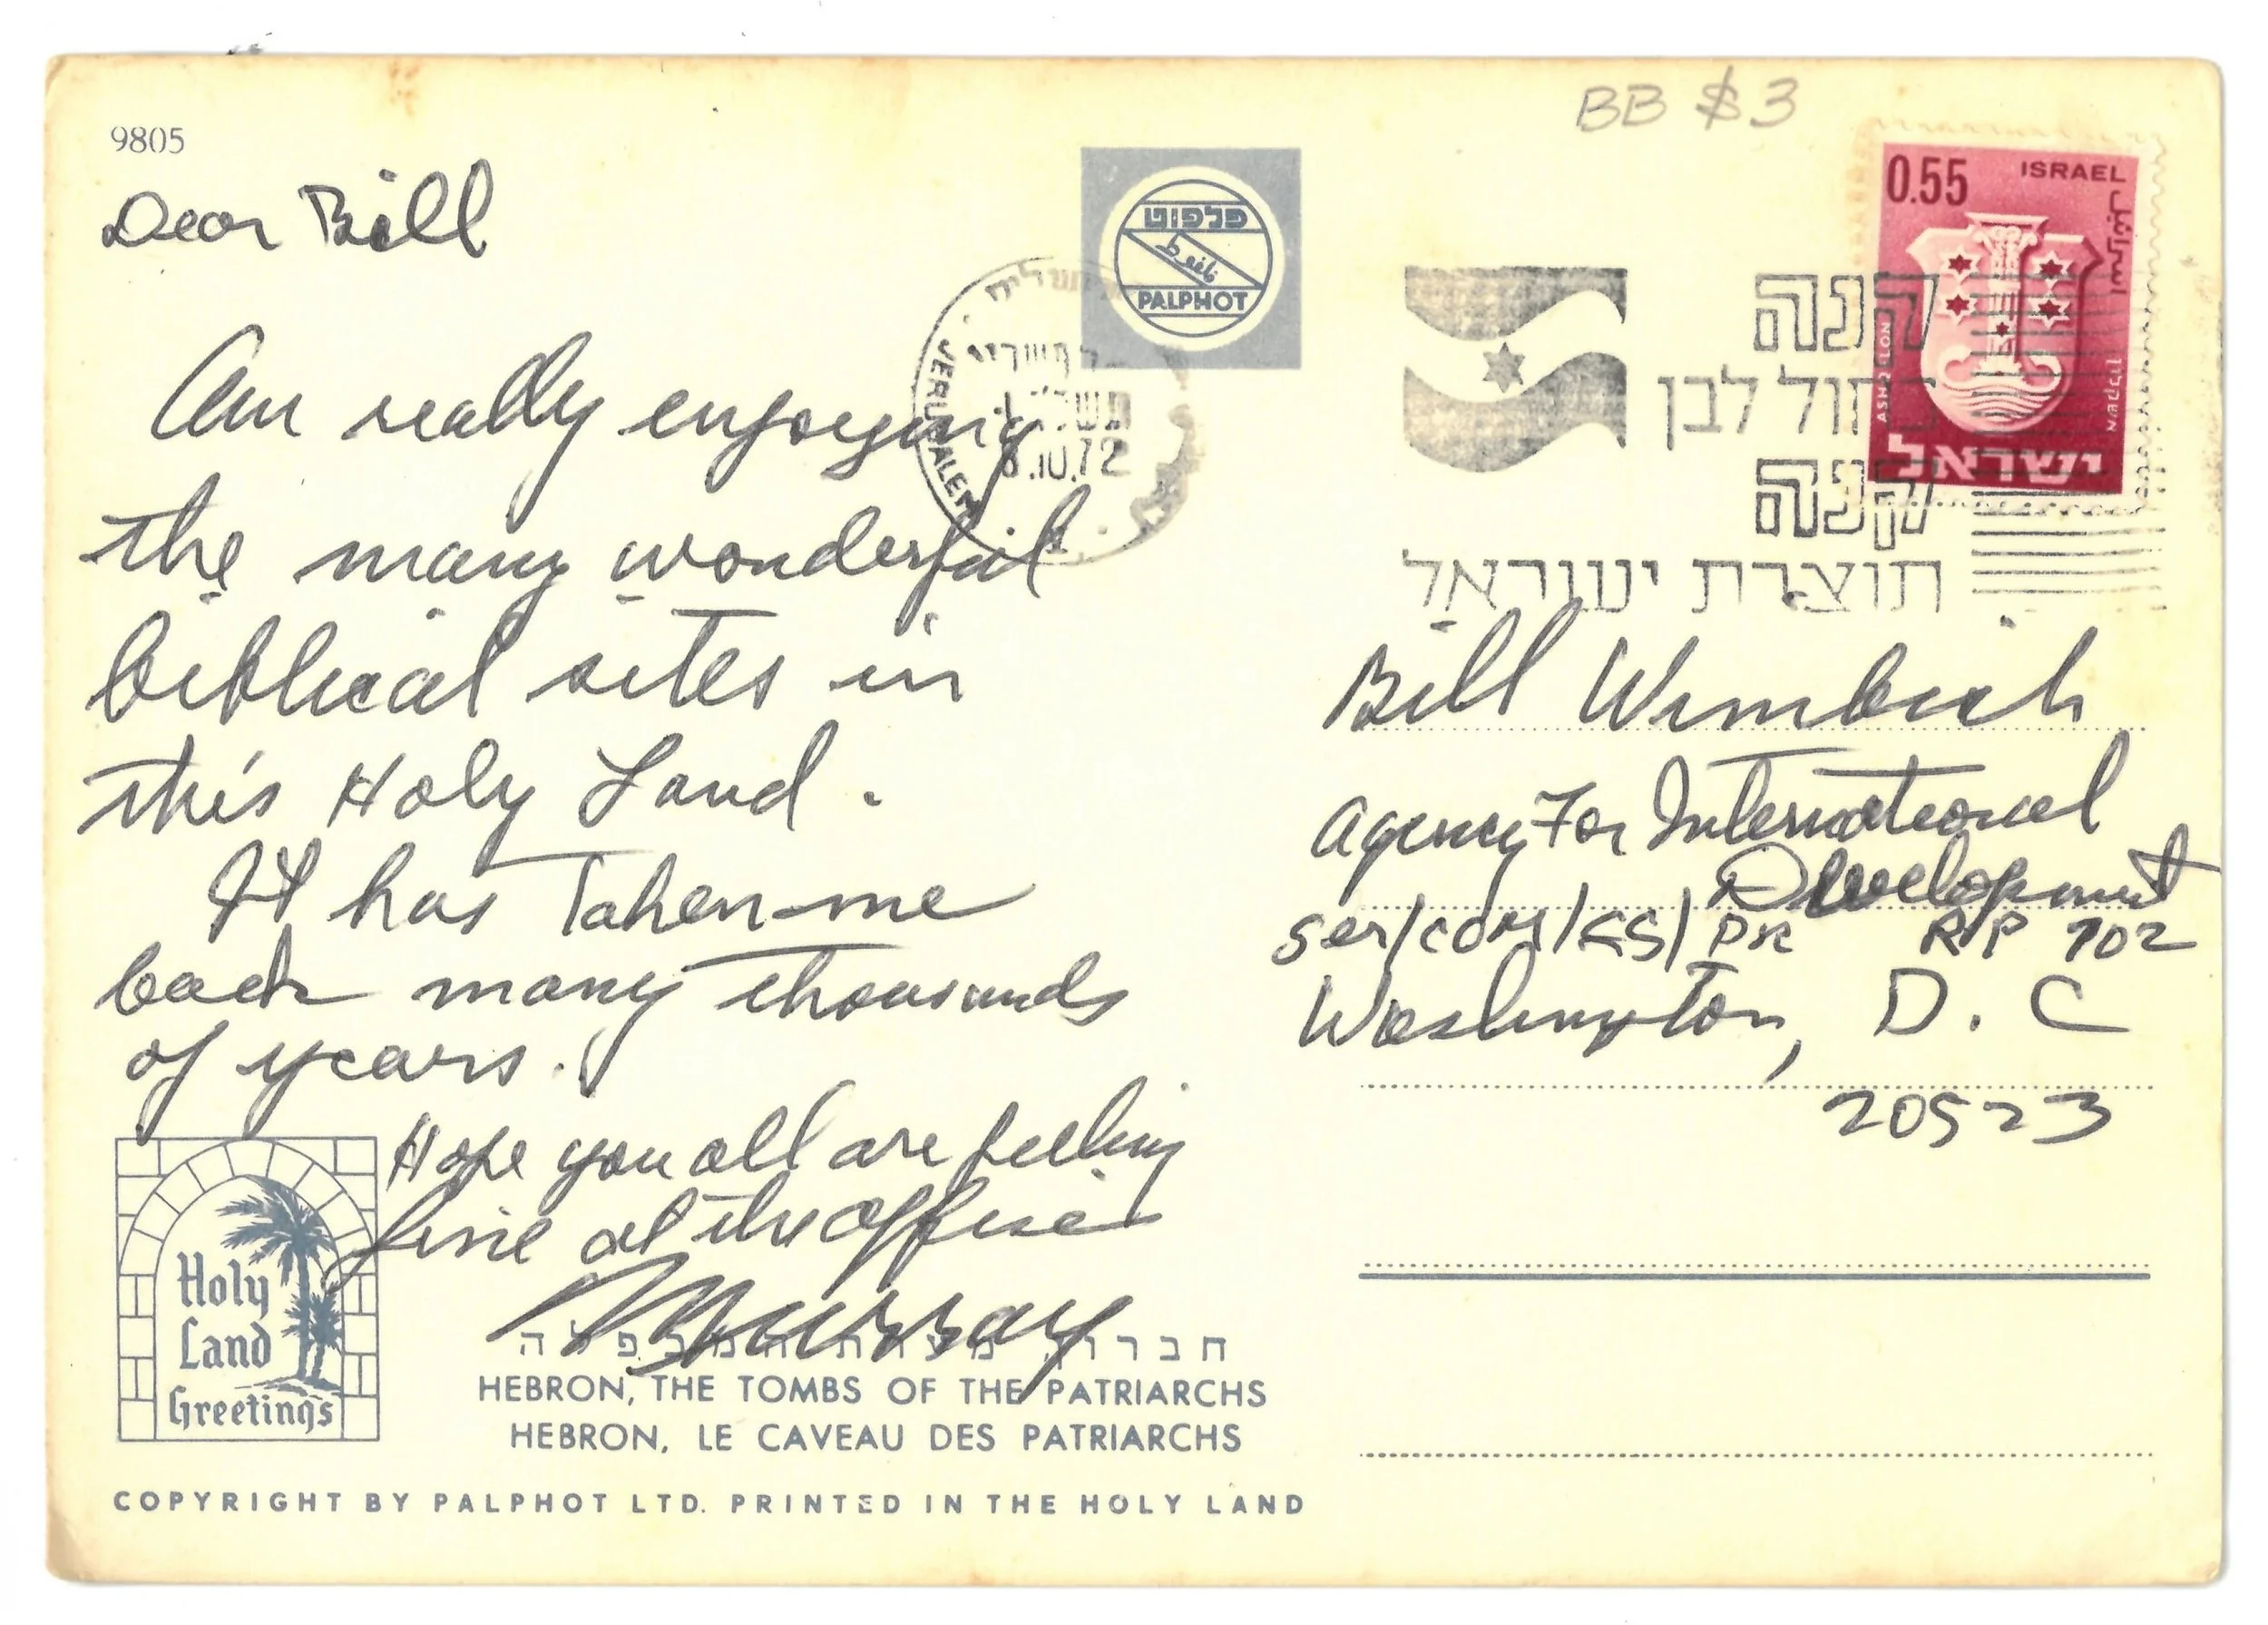 9805
BB $3
Dear Bill
Am really enjoying
the many wonderful
biblical sites in
this Holy Land.
It has taken me
back many thousands
of years.
Hope you all are feeling
fine at the office
Murray
Holy
Land
Greetings
HEBRON, THE TOMBS OF THE PATRIARCHS
HEBRON, LE CAVEAU DES PATRIARCHS
COPYRIGHT BY PALPHOT LTD. PRINTED IN THE HOLY LAND
פלפוט
PALPHOT
JERUSALEM
.10.72
0.55 ISRAEL
اسرائيل
ASHQELON
אשקלון
ישראל
קנה
כחול לבן
קנה
תוצרת ישראל
Bill
Agency For International
Development
Ser/com/ /PR RP 702
Washington, D. C
20523